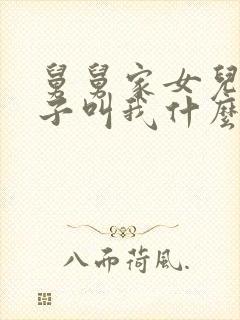 舅舅家女兒
子叫我什麼
八而荷風.